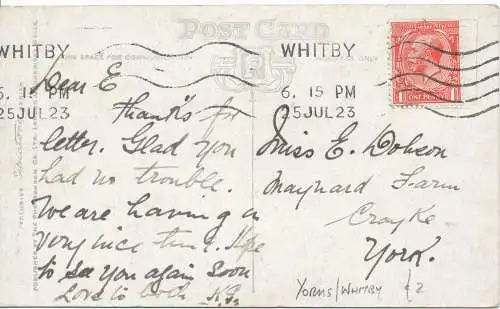 POST CARD
WHITBY
6. 15 PM
25 JUL 23
WHITBY
6. 15 PM
25 JUL 23
ONE PENNY
Dear E
Thanks for
letter. Glad you
had no trouble.
We are having a
very nice time. Hope
to see you again soon
Love to both
Miss E. Dobson
Maynard Farm
Crayke
York.
YORKS/WHITBY £2